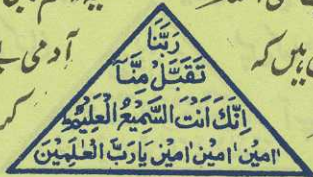 رَبَّنَا
تَقَبَّلْ مِنَّا
اِنَّكَ اَنْتَ السَّمِيْعُ الْعَلِيْمُ
امِيْن امِيْن امِيْن يَارَبَّ الْعٰلَمِيْنَ
ہیں کہ
آدمی